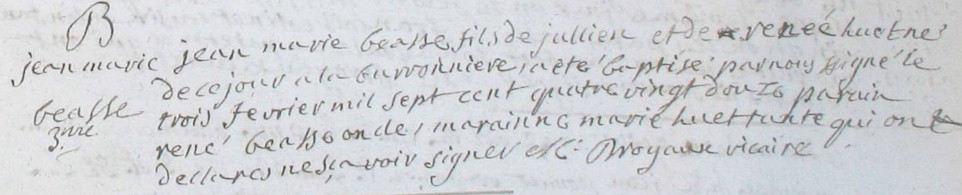 B
jean marie
beasse
3.me
jean marie beasse, fils de jullien et de renée huet né
de ce jour a la burronniere, a eté baptisé par nous signé le
trois fevrier mil sept cent quatre vingt douze parain
rené beasse oncle, marainne marie huet tante qui ont
declarés ne sçavoir signer &c: Broyaux vicaire